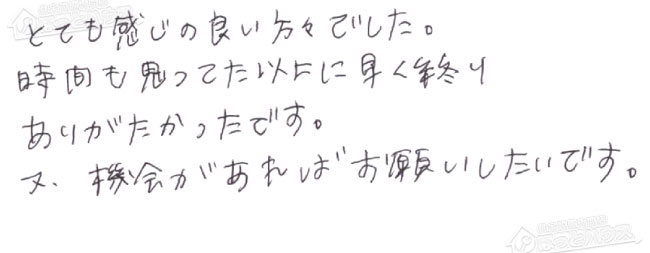 とても感じの良い方々でした。
時間も思ってた以上に早く終り
ありがたかったです。
又、機会があればお願いしたいです。